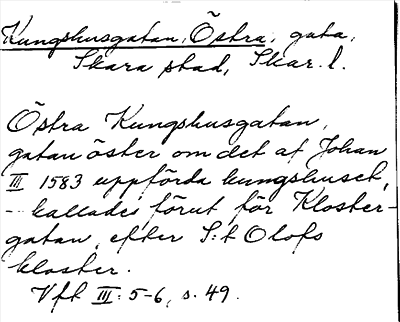 Kungshusgatan, Östra, gata,
Skara stad, Skar. l.
Östra Kungshusgatan,
gatan öster om det af Johan
III 1583 uppförda kungshuset,
-- kallades förut för Kloster-
gatan, efter S:t Olofs
kloster.
Vft III: 5-6, s. 49.